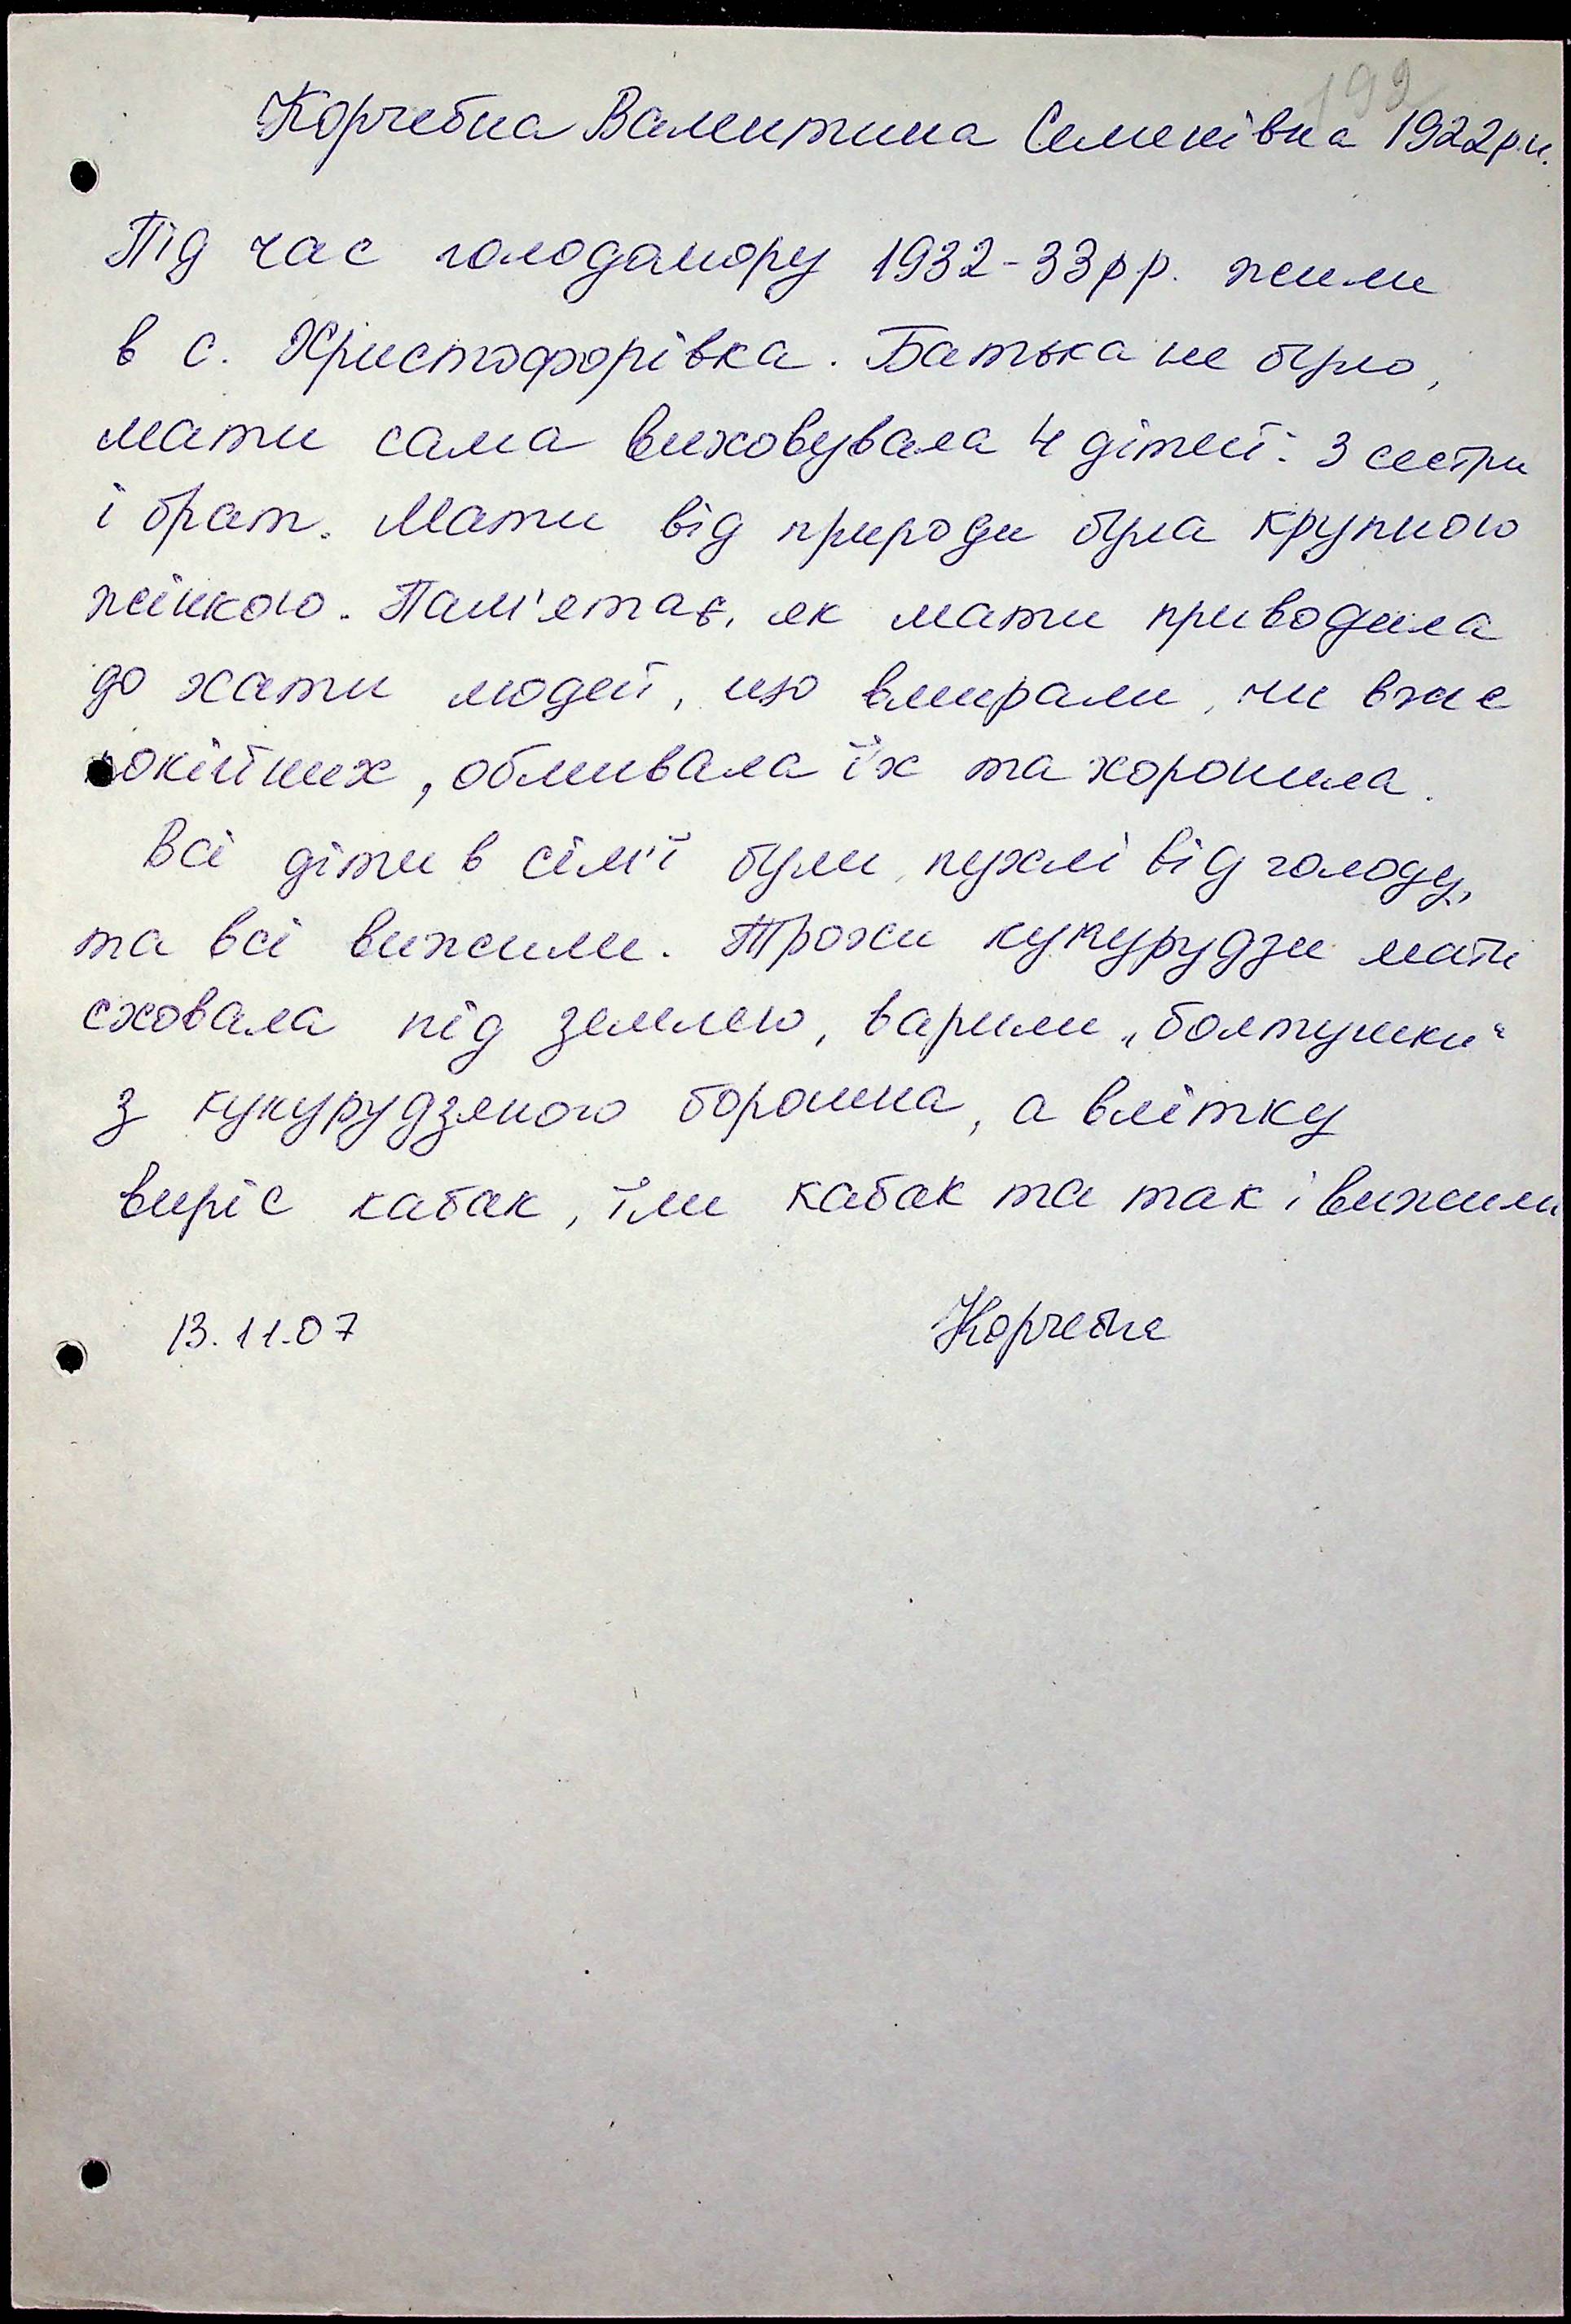 199
Корчебна Валентина Семенівна 1922р.н.
Під час голодомору 1932-33рр. жили
в с. Христофорівка. Батька не було,
мати сама виховувала 4 дітей: 3 сестри
і брат. Мати від природи була крупною
жінкою. Пам'ятає, як мати приводила
до хати людей, що вмирали, чи вже
покійних, обмивала їх та хоронила.
Всі діти в сім'ї були пухлі від голоду,
та всі вижили. Трохи кукурудзи мати
сховала під землею, варили „болтушки“
з кукурудзяного борошна, а влітку
виріс кабак, їли кабак та так і вижили
13.11.07 Корчебна